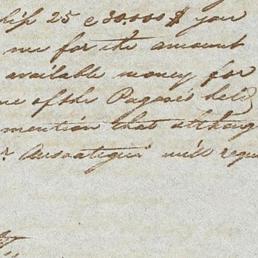 ship 25 @ 30.000 $ you
me for the amount
available money for
me of the Pagarés held
mention that although
will requ